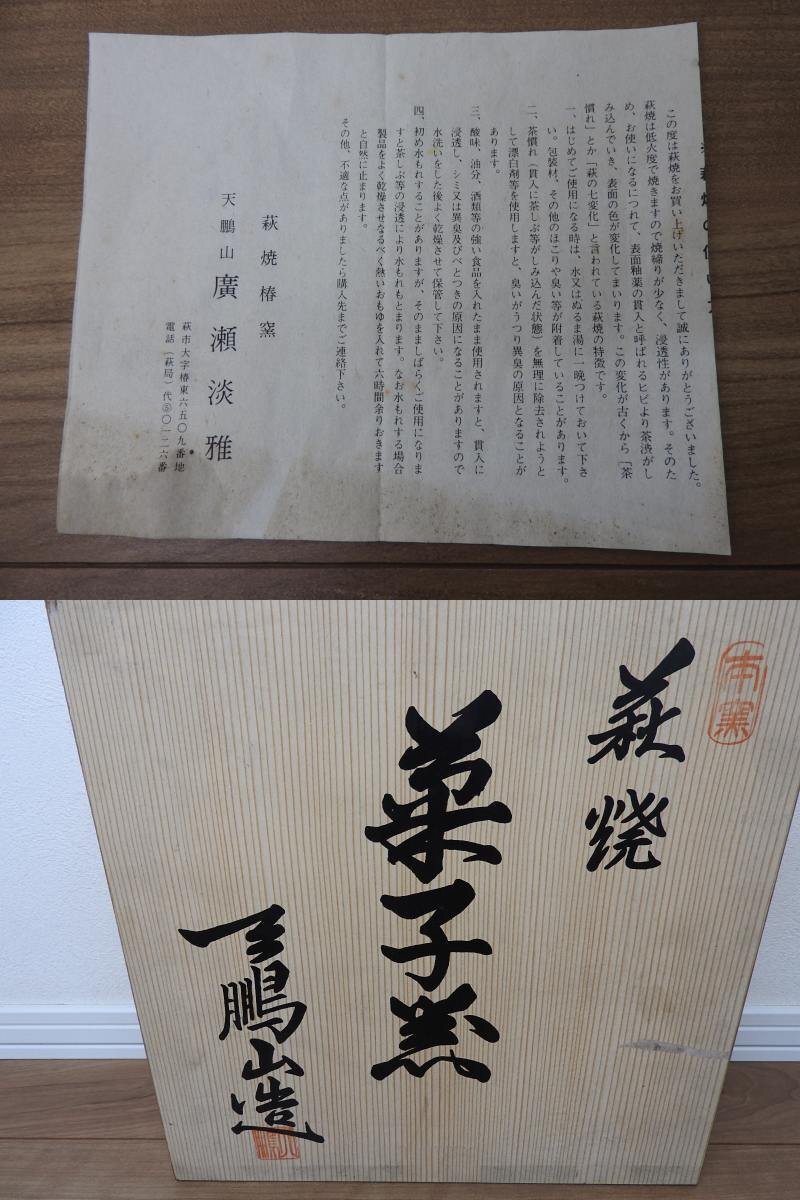 この度は萩焼をお買い上げいただきまして誠にありがとうございました。
萩焼は低火度で焼きますので焼締りが少なく、浸透性があります。そのた
め、お使いになるにつれて、表面釉薬の貫入と呼ばれるヒビより茶渋がし
み込んでいき、表面の色が変化してまいります。この変化が古くから「茶
慣れ」とか「萩の七変化」と言われている萩焼の特徴です。
一、はじめてご使用になる時は、水又はぬるま湯に一晩つけておいて下さ
い。包装材、その他のほこりや臭い等が附着していることがあります。
二、茶慣れ(貫入に茶しぶ等がしみ込んだ状態)を無理に除去されようと
して漂白剤等を使用しますと、臭いがうつり異臭の原因となることが
あります。
三、酸味、油分、酒類等の強い食品を入れたまま使用されますと、貫入に
浸透し、シミ又は異臭及びべとつきの原因になることがありますので
水洗いをした後よく乾燥させて保管して下さい。
四、初め水もれすることがありますが、そのまましばらくご使用になりま
すと茶しぶ等の浸透により水もれもとまります。なお水もれする場合
製品をよく乾燥させなるべく熱いおもゆを入れて六時間余りおきます
と自然に止まります。
その他、不適な点がありましたら購入先までご連絡下さい。
萩焼椿窯
天鵬山 廣瀬淡雅
萩市大字椿東六五〇九番地
電話(萩局)代⑤〇一二六番
本窯
萩焼
菓子器
天鵬山造